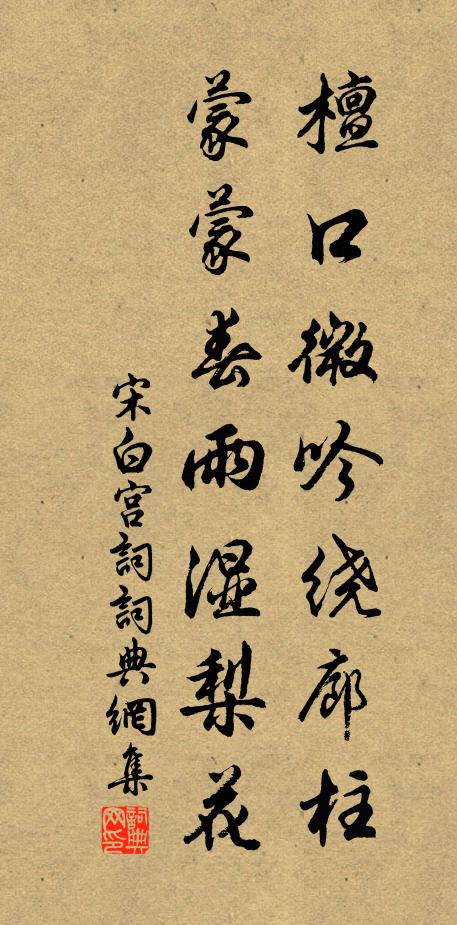 檀口微吟绕廊柱
蒙蒙春雨湿梨花
宋白宫詞詞典網集
詞典網印